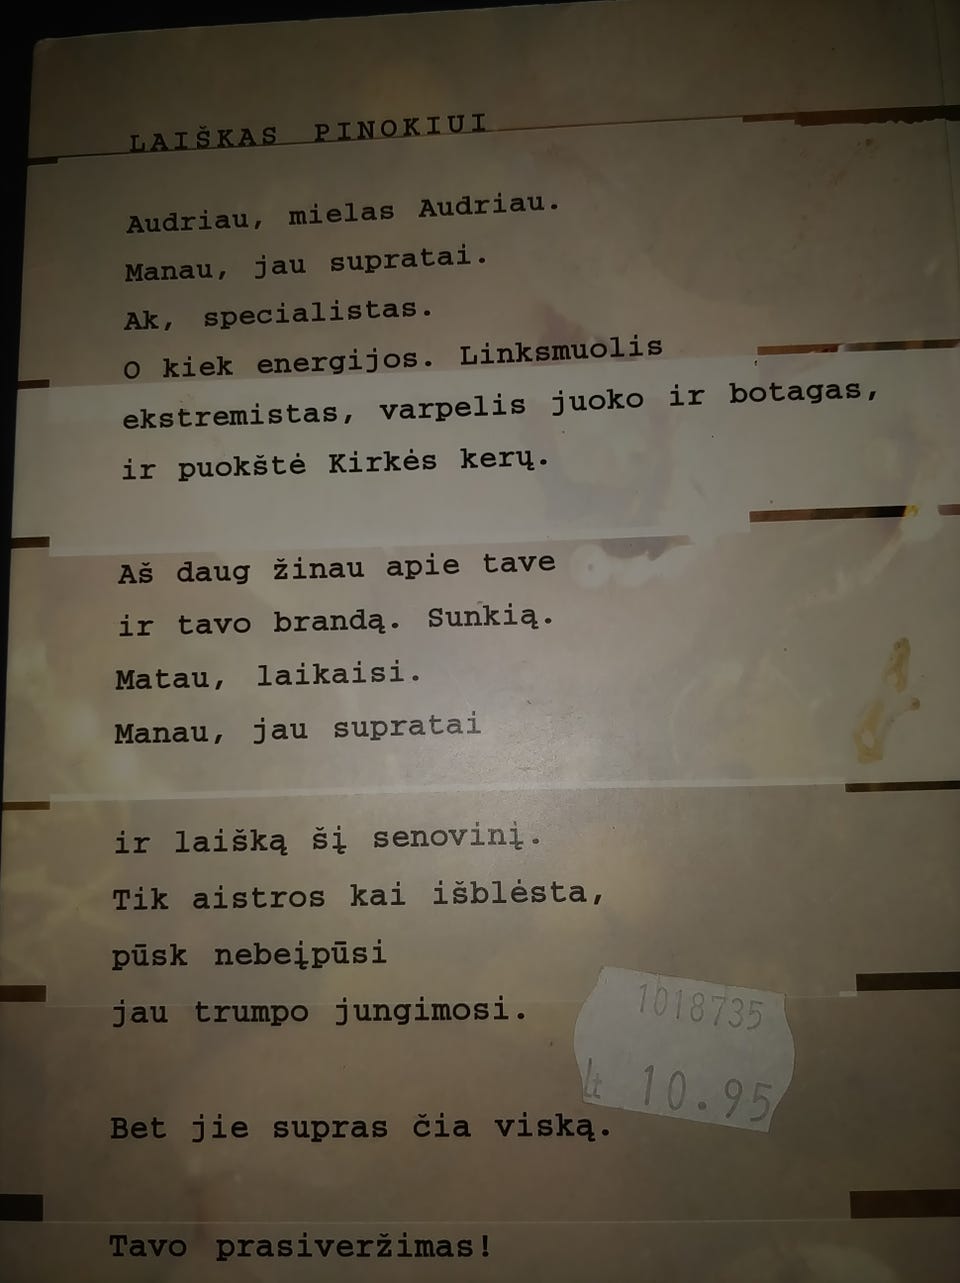 LAIŠKAS PINOKIUI
Audriau, mielas Audriau.
Manau, jau supratai.
Ak, specialistas.
O kiek energijos. Linksmuolis
ekstremistas, varpelis juoko ir botagas,
ir puokštė Kirkės kerų.
Aš daug žinau apie tave
ir tavo brandą. Sunkią.
Matau, laikaisi.
Manau, jau supratai
ir laišką šį senovinį.
Tik aistros kai išblėsta,
pūsk nebeįpūsi
jau trumpo jungimosi.
1018735
Lt 10.95
Bet jie supras čia viską.
Tavo prasiveržimas!